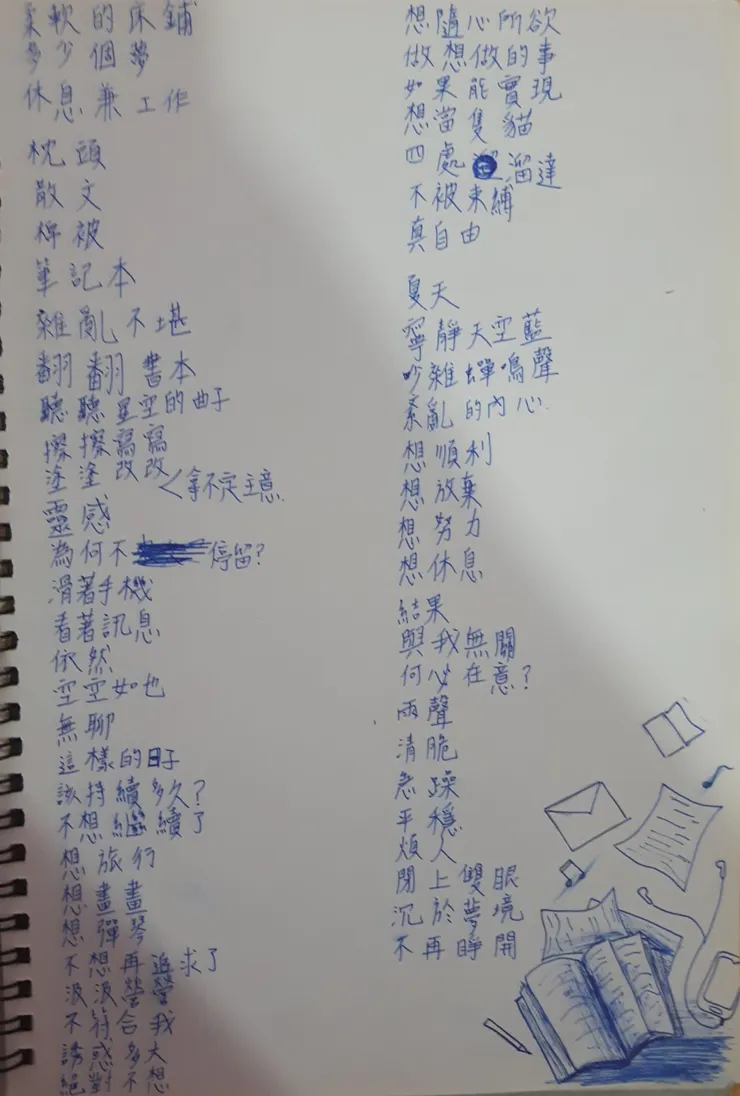 柔軟的床鋪
多少個夢
休息兼工作
枕頭
散文
棉被
筆記本
雜亂不堪
翻翻書本
聽聽星空的曲子
擦擦寫寫
塗塗改改
<拿不定主意
靈感
為何不停留?
滑著手機
看著訊息
依然
空空如也
無聊
這樣的日子
該持續多久?
不想繼續了
想旅行
想畫畫
想彈琴
不想再追求了
汲汲營營
不符合我
誘惑多大
絕對不想
想隨心所欲
做想做的事
如果能實現
想當隻貓
四處溜達
不被束縛
真自由
夏天
寧靜天空藍
吵雜蟬鳴聲
紊亂的內心
想順利
想放棄
想努力
想休息
結果
與我無關
何必在意?
雨聲
清脆
急躁
平穩
煩人
閉上雙眼
沉於夢境
不再睜開